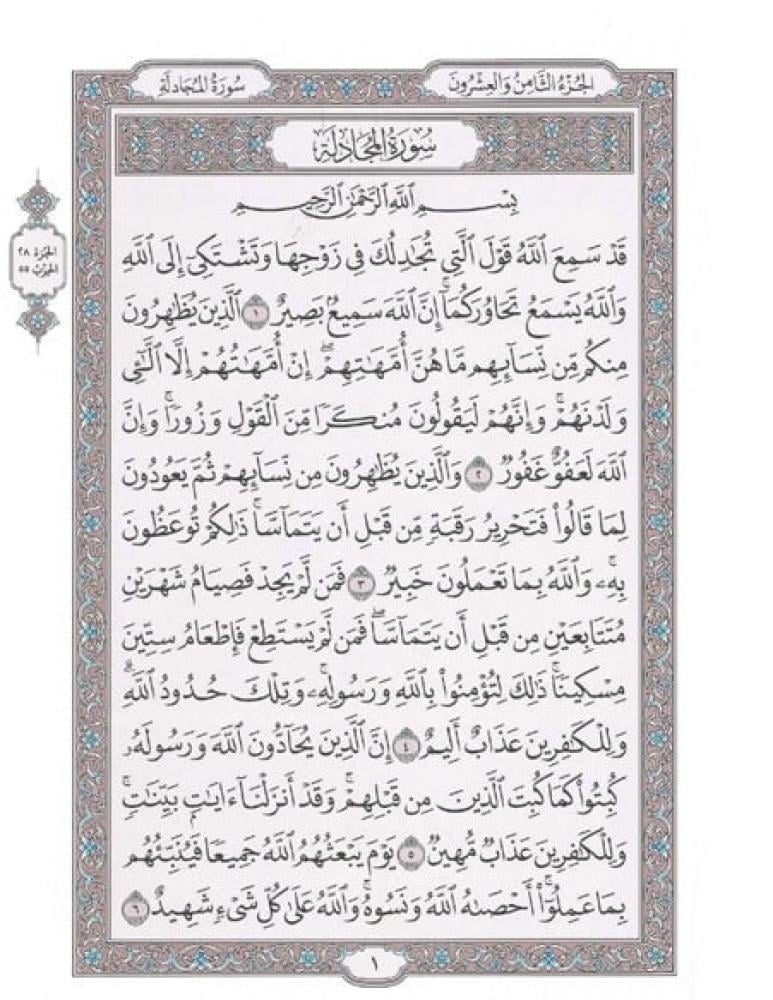 الجزء الثامن والعشرون
سورة المجادلة
سُورَةُ المُجَادلَةِ
بِسْمِ اللَّهِ الرَّحْمَٰنِ الرَّحِيمِ
الجزء ٢٨
الحزب ٥٥
قَدْ سَمِعَ ٱللَّهُ قَوْلَ ٱلَّتِي تُجَٰدِلُكَ فِي زَوْجِهَا وَتَشْتَكِيٓ إِلَى ٱللَّهِ
وَٱللَّهُ يَسْمَعُ تَحَاوُرَكُمَآۚ إِنَّ ٱللَّهَ سَمِيعُۢ بَصِيرٌ ١ ٱلَّذِينَ يُظَٰهِرُونَ
مِنكُم مِّن نِّسَآئِهِم مَّا هُنَّ أُمَّهَٰتِهِمْۖ إِنْ أُمَّهَٰتُهُمْ إِلَّا ٱلَّٰٓـِٔي
وَلَدْنَهُمْۚ وَإِنَّهُمْ لَيَقُولُونَ مُنكَرًا مِّنَ ٱلْقَوْلِ وَزُورًاۚ وَإِنَّ
ٱللَّهَ لَعَفُوٌّ غَفُورٌ ٢ وَٱلَّذِينَ يُظَٰهِرُونَ مِن نِّسَآئِهِمْ ثُمَّ يَعُودُونَ
لِمَا قَالُواْ فَتَحْرِيرُ رَقَبَةٍ مِّن قَبْلِ أَن يَتَمَآسَّاۚ ذَٰلِكُمْ تُوعَظُونَ
بِهِۦۚ وَٱللَّهُ بِمَا تَعْمَلُونَ خَبِيرٌ ٣ فَمَن لَّمْ يَجِدْ فَصِيَامُ شَهْرَيْنِ
مُتَتَابِعَيْنِ مِن قَبْلِ أَن يَتَمَآسَّاۖ فَمَن لَّمْ يَسْتَطِعْ فَإِطْعَامُ سِتِّينَ
مِسْكِينًاۚ ذَٰلِكَ لِتُؤْمِنُواْ بِٱللَّهِ وَرَسُولِهِۦۚ وَتِلْكَ حُدُودُ ٱللَّهِۗ
وَلِلْكَٰفِرِينَ عَذَابٌ أَلِيمٌ ٤ إِنَّ ٱلَّذِينَ يُحَآدُّونَ ٱللَّهَ وَرَسُولَهُۥ
كُبِتُواْ كَمَا كُبِتَ ٱلَّذِينَ مِن قَبْلِهِمْۚ وَقَدْ أَنزَلْنَآ ءَايَٰتِۭ بَيِّنَٰتٍۚ
وَلِلْكَٰفِرِينَ عَذَابٌ مُّهِينٌ ٥ يَوْمَ يَبْعَثُهُمُ ٱللَّهُ جَمِيعًا فَيُنَبِّئُهُم
بِمَا عَمِلُوٓاْۚ أَحْصَىٰهُ ٱللَّهُ وَنَسُوهُۚ وَٱللَّهُ عَلَىٰ كُلِّ شَيْءٍ شَهِيدٌ ٦
١